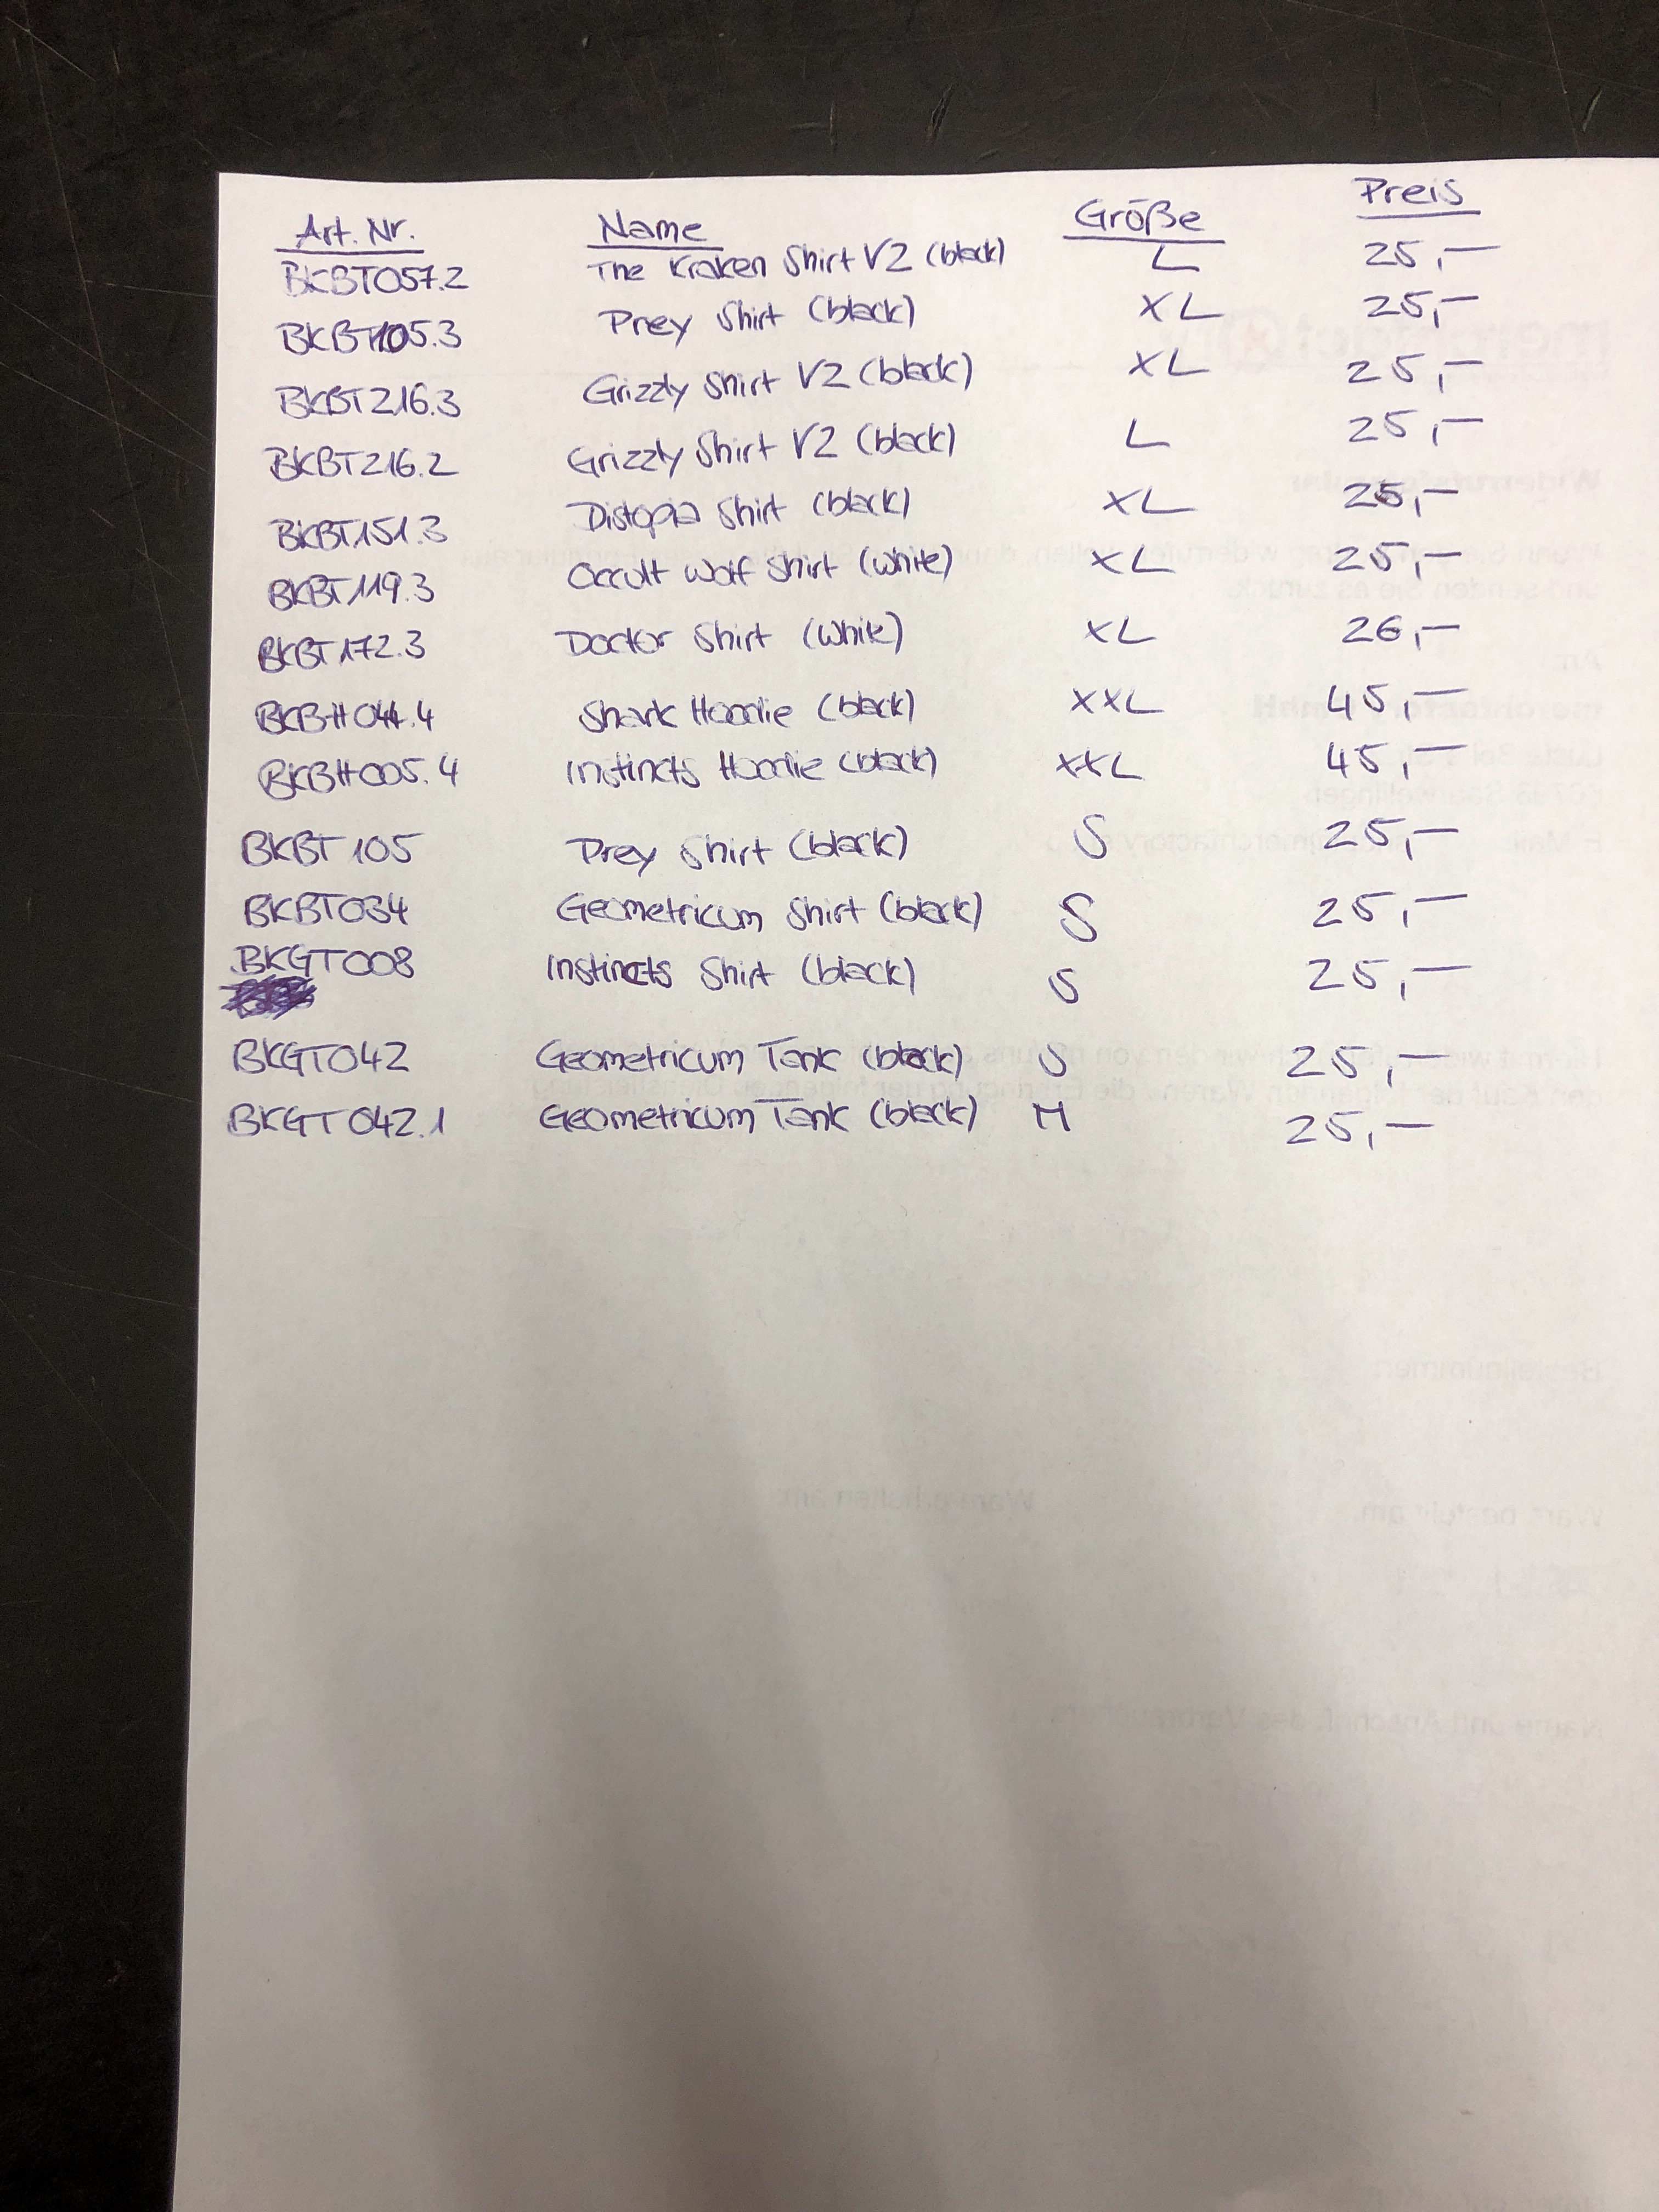 Art. Nr. Name Größe Preis
BKBT057.2 The Kraken Shirt V2 (black) L 25,—
BKBT105.3 Prey Shirt (black) XL 25,—
BKBT216.3 Grizzly Shirt V2 (black) XL 25,—
BKBT216.2 Grizzly Shirt V2 (black) L 25,—
BKBT151.3 Distopia Shirt (black) XL 25,—
BKBT119.3 Occult Wolf Shirt (white) XL 25,—
BKBT172.3 Doctor Shirt (white) XL 26,—
Shark Hoodie (black) XXL 45,—
BKBH005.4 Instincts Hoodie (black) XXL 45,—
BKBT105 Prey Shirt (black) S 25,—
BKBT034 Geometricum Shirt (black) S 25,—
BKGT008 Instincts Shirt (black) S 25,—
BKGT042 Geometricum Tank (black) S 25,—
BKGT042.1 Geometricum Tank (black) M 25,—
Widerrufsformular
und senden Sie es zurück
An:
Bestellnummer:
Ware bestellt am: Ware erhalten am:
Name und Anschrift des Verbrauchers